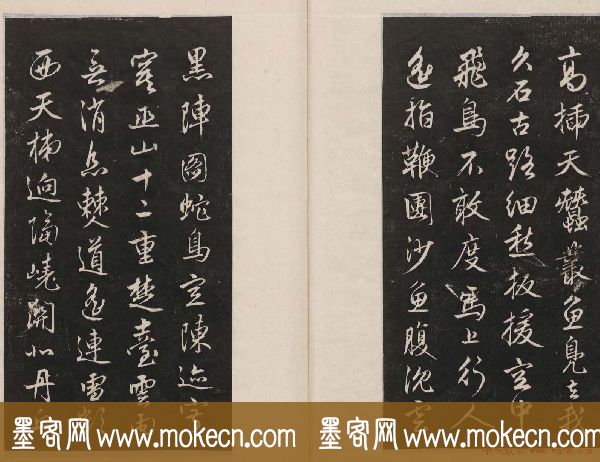 高插天蠶叢魚鳧去我
久石古路細愁扳援空中
飛鳥不敢度馬上行人
遙指鞭圍沙魚腹沈雲
黑陣圖蛇鳥空陳迹寂
寞巫山十二重楚臺雲雨
無消息僰道遙連雪嶺
西天梯迥隔嶢關北丹
墨客网 www.mokecn.com
墨客网 www.mokecn.com